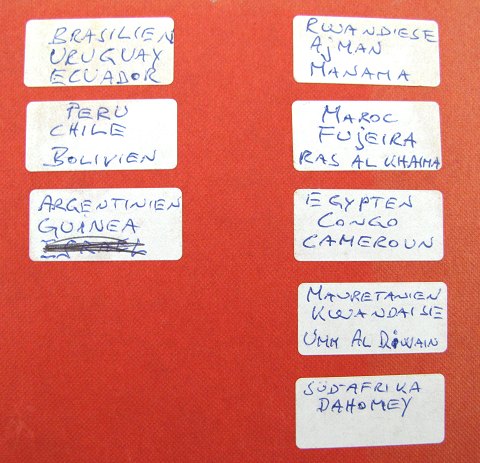 BRASILIEN
URUGUAY
ECUADOR
PERU
CHILE
BOLIVIEN
ARGENTINIEN
GUINEA
RWANDIESE
AJMAN
MANAMA
MAROC
FUJEIRA
RAS AL KHAIMA
EGYPTEN
CONGO
CAMEROUN
MAURETANIEN
KWANDAISIE
UMM AL QIWAIN
SÜDAFRIKA
DAHOMEY